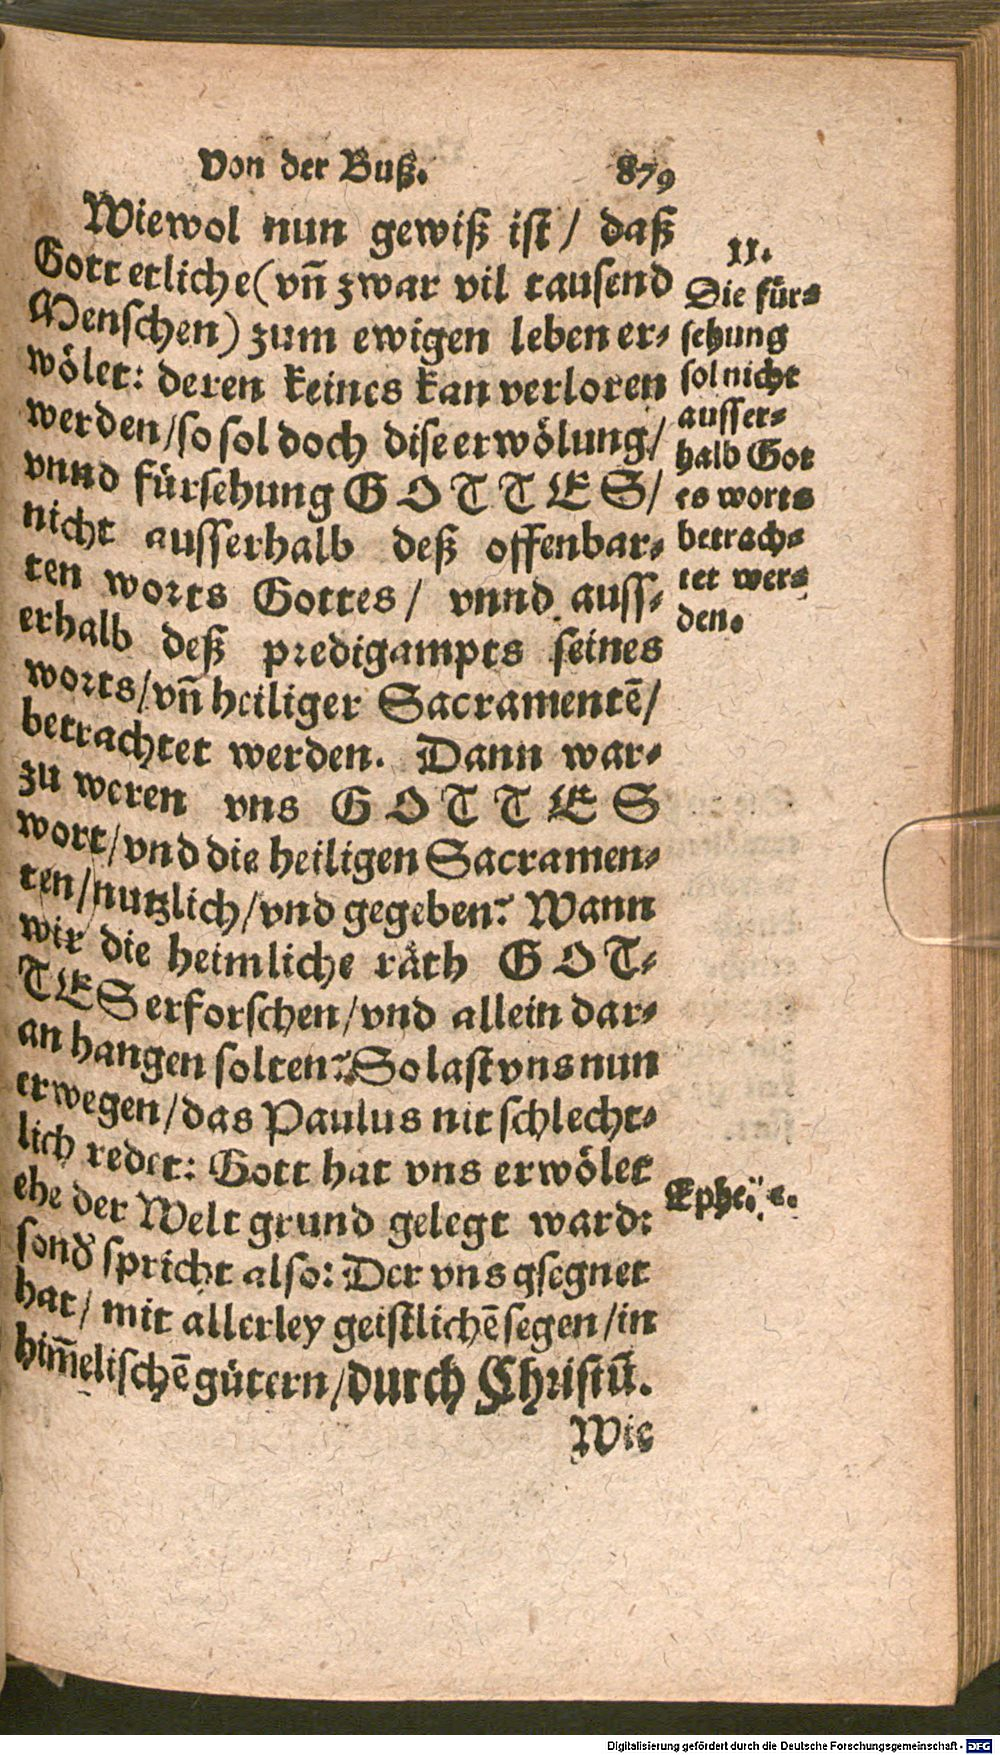 Von der Buß. 879
Wiewol nun gewiß ist / daß
Gott etliche (vñ zwar vil tausend
Menschen) zum ewigen leben er-
wölet: deren keines kan verloren
werden / so sol doch dise erwölung /
vnnd fürsehung GOTTES /
nicht ausserhalb deß offenbar-
ten worts Gottes / vnnd auss-
erhalb deß predigampts seines
worts / vñ heiliger Sacramentē /
betrachtet werden. Dann war-
zu weren vns GOTTES
wort / vnd die heiligen Sacramen-
ten / nutzlich / vnd gegeben? Wann
wir die heimliche räth GOT-
TES erforschen / vnd allein dar-
an hangen solten? So last vns nun
erwegen / das Paulus nit schlecht-
lich redet: Gott hat vns erwölet
ehe der Welt grund gelegt ward:
sond' spricht also: Der vns gsegnet
hat / mit allerley geistlichē segen / in
him̃elischē gütern / durch Christū.
Wie
II.
Die für-
sehung
sol nicht
ausser-
halb Got
es worts
betrach-
tet wer-
den.
Ephe.
Digitalisierung gefördert durch die Deutsche Forschungsgemeinschaft - DFG